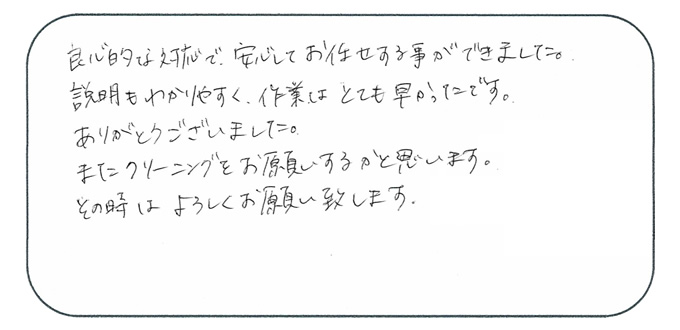 良心的な対応で、安心してお任せする事ができました。
説明もわかりやすく、作業はとても早かったです。
ありがとうございました。
またクリーニングをお願いするかと思います。
その時はよろしくお願い致します。